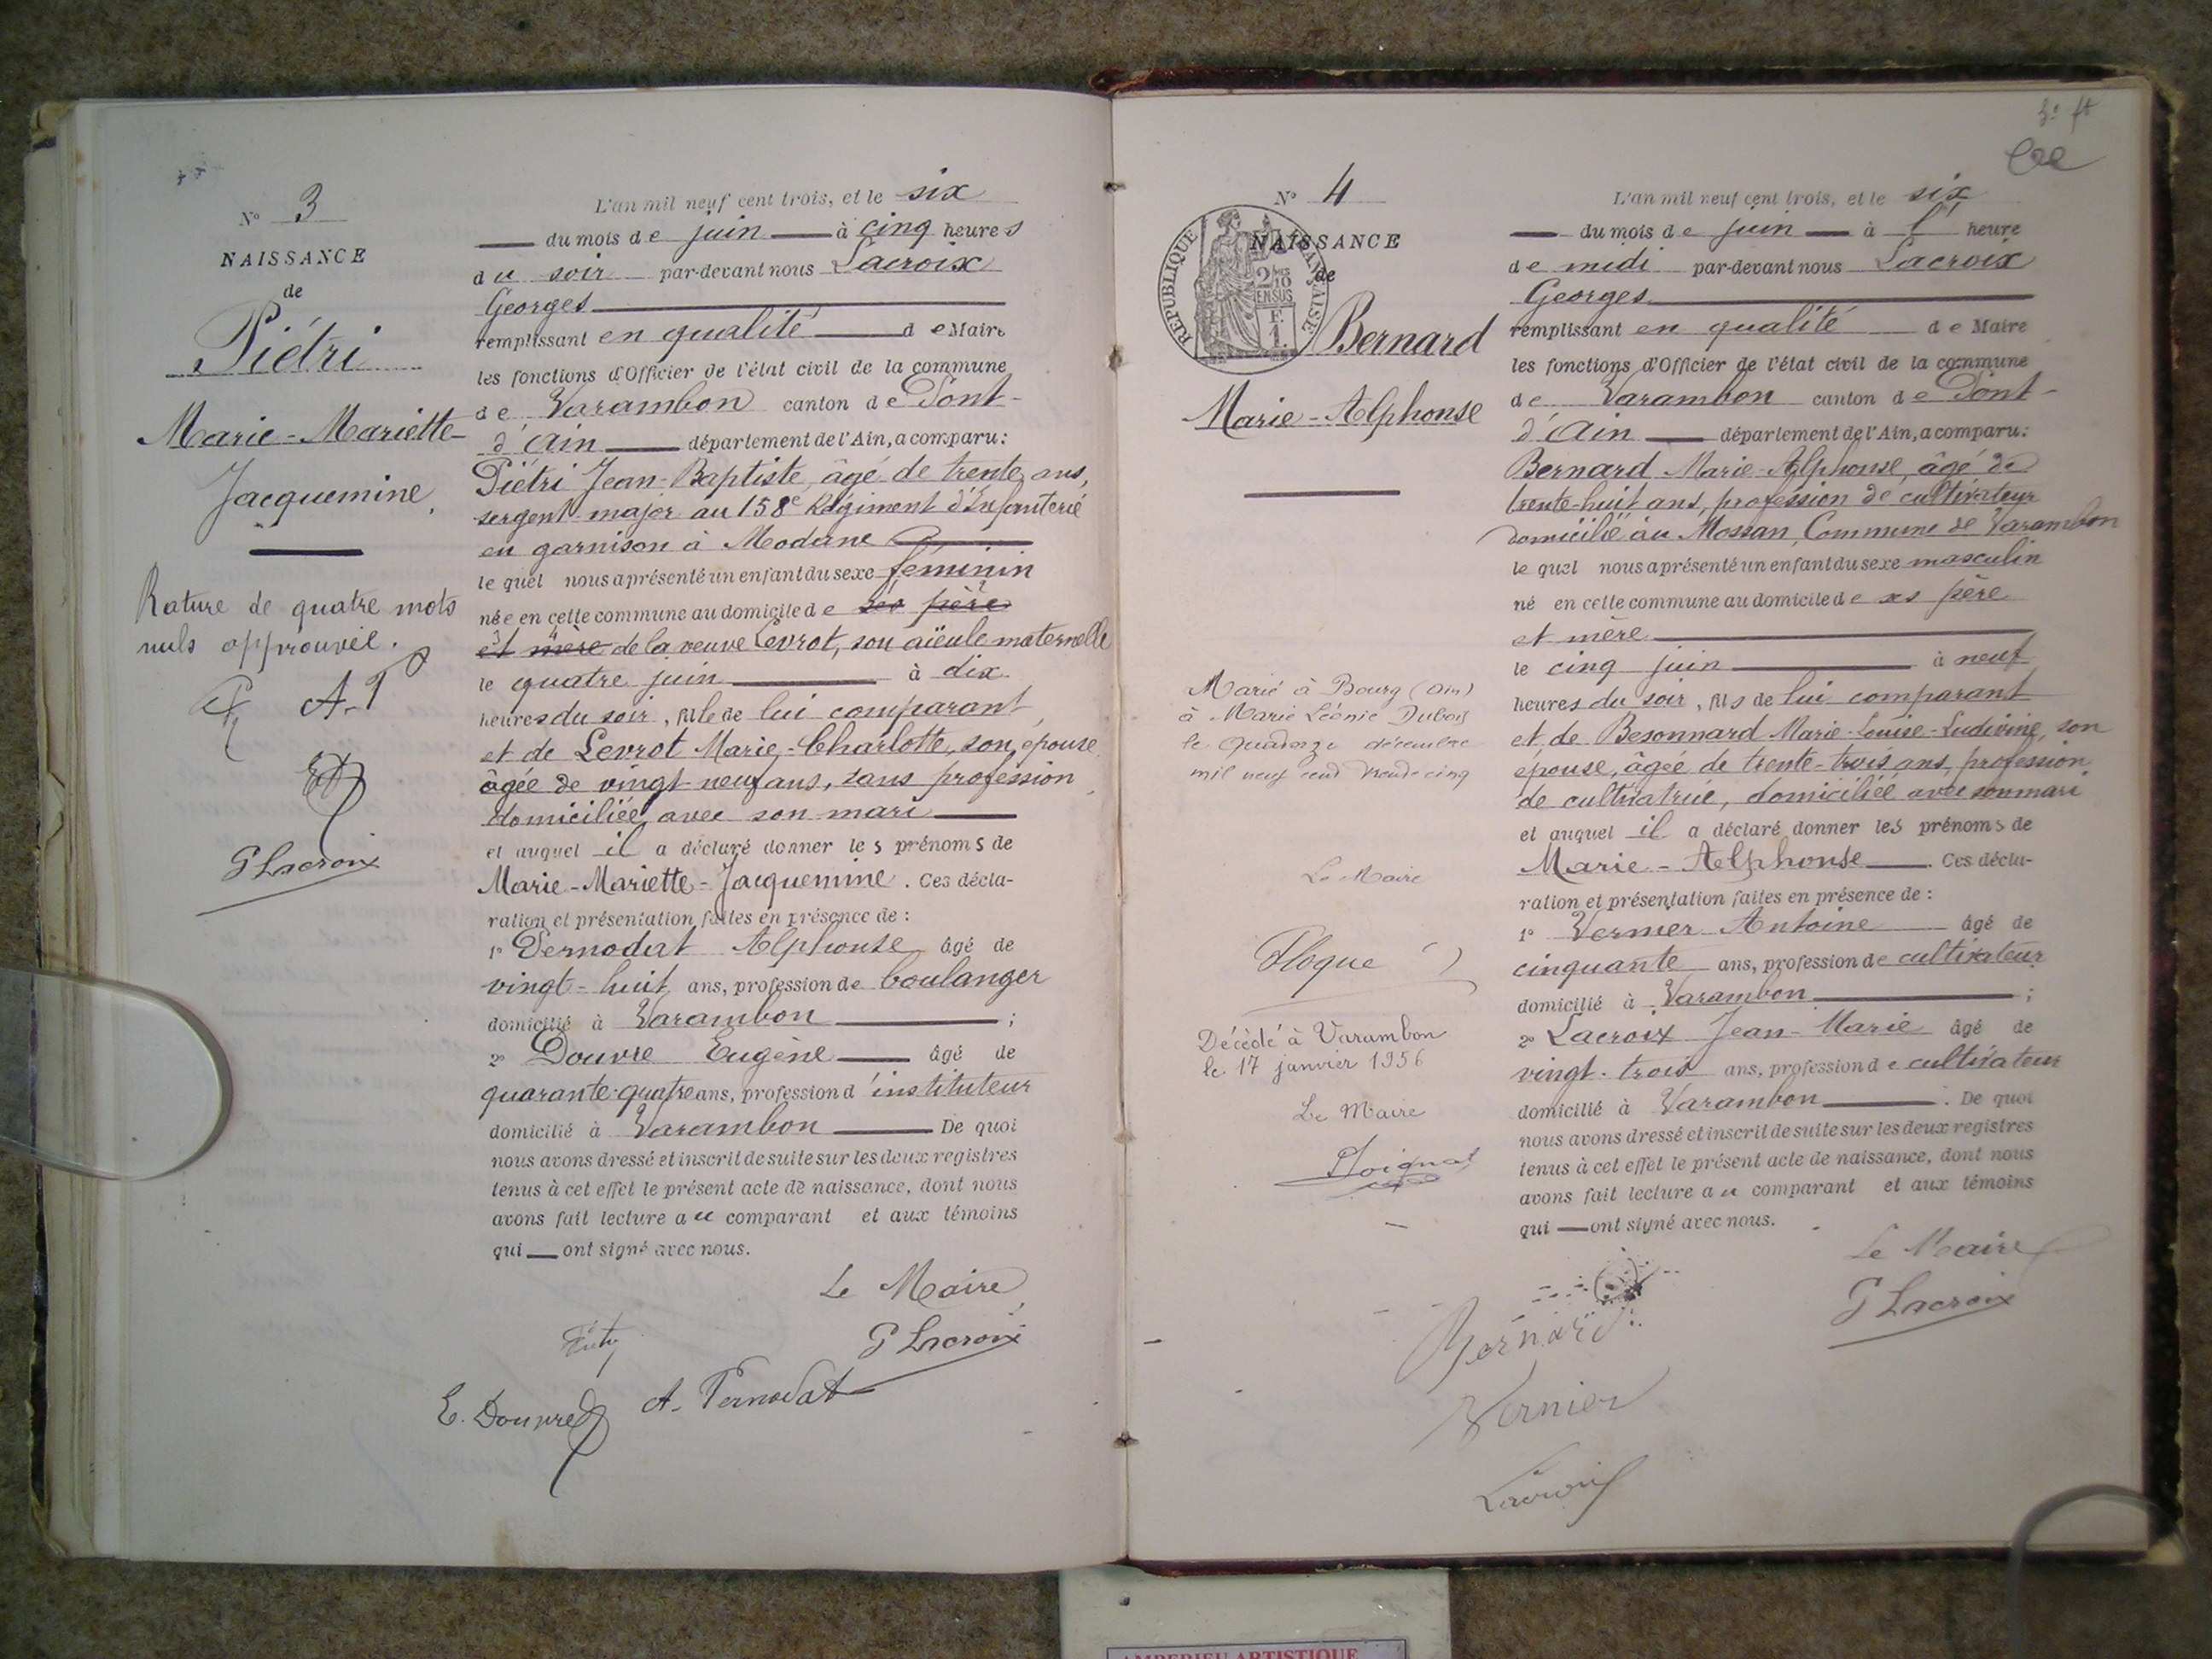 N° 3
NAISSANCE
de
Piétri
Marie-Mariette-
Jacquemine.
Rature de quatre mots
nuls approuvée.
A.P
G Lacroix
L'an mil neuf cent trois, et le six
du mois de juin à cinq heures
du soir par-devant nous Lacroix
Georges
remplissant en qualité de Maire
les fonctions d'Officier de l'état civil de la commune
de Varambon canton de Pont-
d'Ain département de l'Ain, a comparu:
Piétri Jean-Baptiste, âgé de trente ans,
sergent-major au 158e Régiment d'Infanterie
en garnison à Modane
lequel nous a présenté un enfant du sexe féminin
née en cette commune au domicile de ses père
et mère de la veuve Levrot, son aïeule maternelle
le quatre juin à dix
heures du soir, fille de lui comparant,
et de Levrot Marie-Charlotte, son épouse
âgée de vingt-neuf ans, sans profession,
domiciliée avec son mari
et auquel il a déclaré donner les prénoms de
Marie-Mariette-Jacquemine. Ces décla-
ration et présentation faites en présence de :
1° Pernodat Alphonse âgé de
vingt-huit ans, profession de boulanger
domicilié à Varambon ;
2° Douvre Eugène âgé de
quarante-quatre ans, profession d'instituteur
domicilié à Varambon De quoi
nous avons dressé et inscrit de suite sur les deux registres
tenus à cet effet le présent acte de naissance, dont nous
avons fait lecture au comparant et aux témoins
qui ont signé avec nous.
Le Maire
G Lacroix
E. Douvre A. Pernodat
N° 4
NAISSANCE
de
REPUBLIQUE FRANÇAISE
2/10 EN SUS
F. 1.
Bernard
Marie-Alphonse
Marié à Bourg (Ain)
à Marie Léonie Dubois
le quatorze décembre
mil neuf cent trente cinq
Le Maire
Décédé à Varambon
le 17 janvier 1956
Le Maire
L'an mil neuf cent trois, et le six
du mois de juin à l' heure
de midi par-devant nous Lacroix
Georges
remplissant en qualité de Maire
les fonctions d'Officier de l'état civil de la commune
de Varambon canton de Pont-
d'Ain département de l'Ain, a comparu:
Bernard Marie-Alphonse, âgé de
trente-huit ans, profession de cultivateur
domicilié au Mossan, Commune de Varambon
lequel nous a présenté un enfant du sexe masculin
né en cette commune au domicile de ses père
et mère
le cinq juin à neuf
heures du soir, fils de lui comparant
et de Besonnard Marie-Louise-Ludivine, son
épouse, âgée de trente-trois ans, profession
de cultivatrice, domiciliée avec son mari
et auquel il a déclaré donner les prénoms de
Marie-Alphonse. Ces décla-
ration et présentation faites en présence de :
1° Vernier Antoine âgé de
cinquante ans, profession de cultivateur
domicilié à Varambon ;
2° Lacroix Jean-Marie âgé de
vingt-trois ans, profession de cultivateur
domicilié à Varambon. De quoi
nous avons dressé et inscrit de suite sur les deux registres
tenus à cet effet le présent acte de naissance, dont nous
avons fait lecture au comparant et aux témoins
qui ont signé avec nous.
Le Maire
G Lacroix
Bernard
Vernier
Lacroix
AMBERIEU ARTISTIQUE